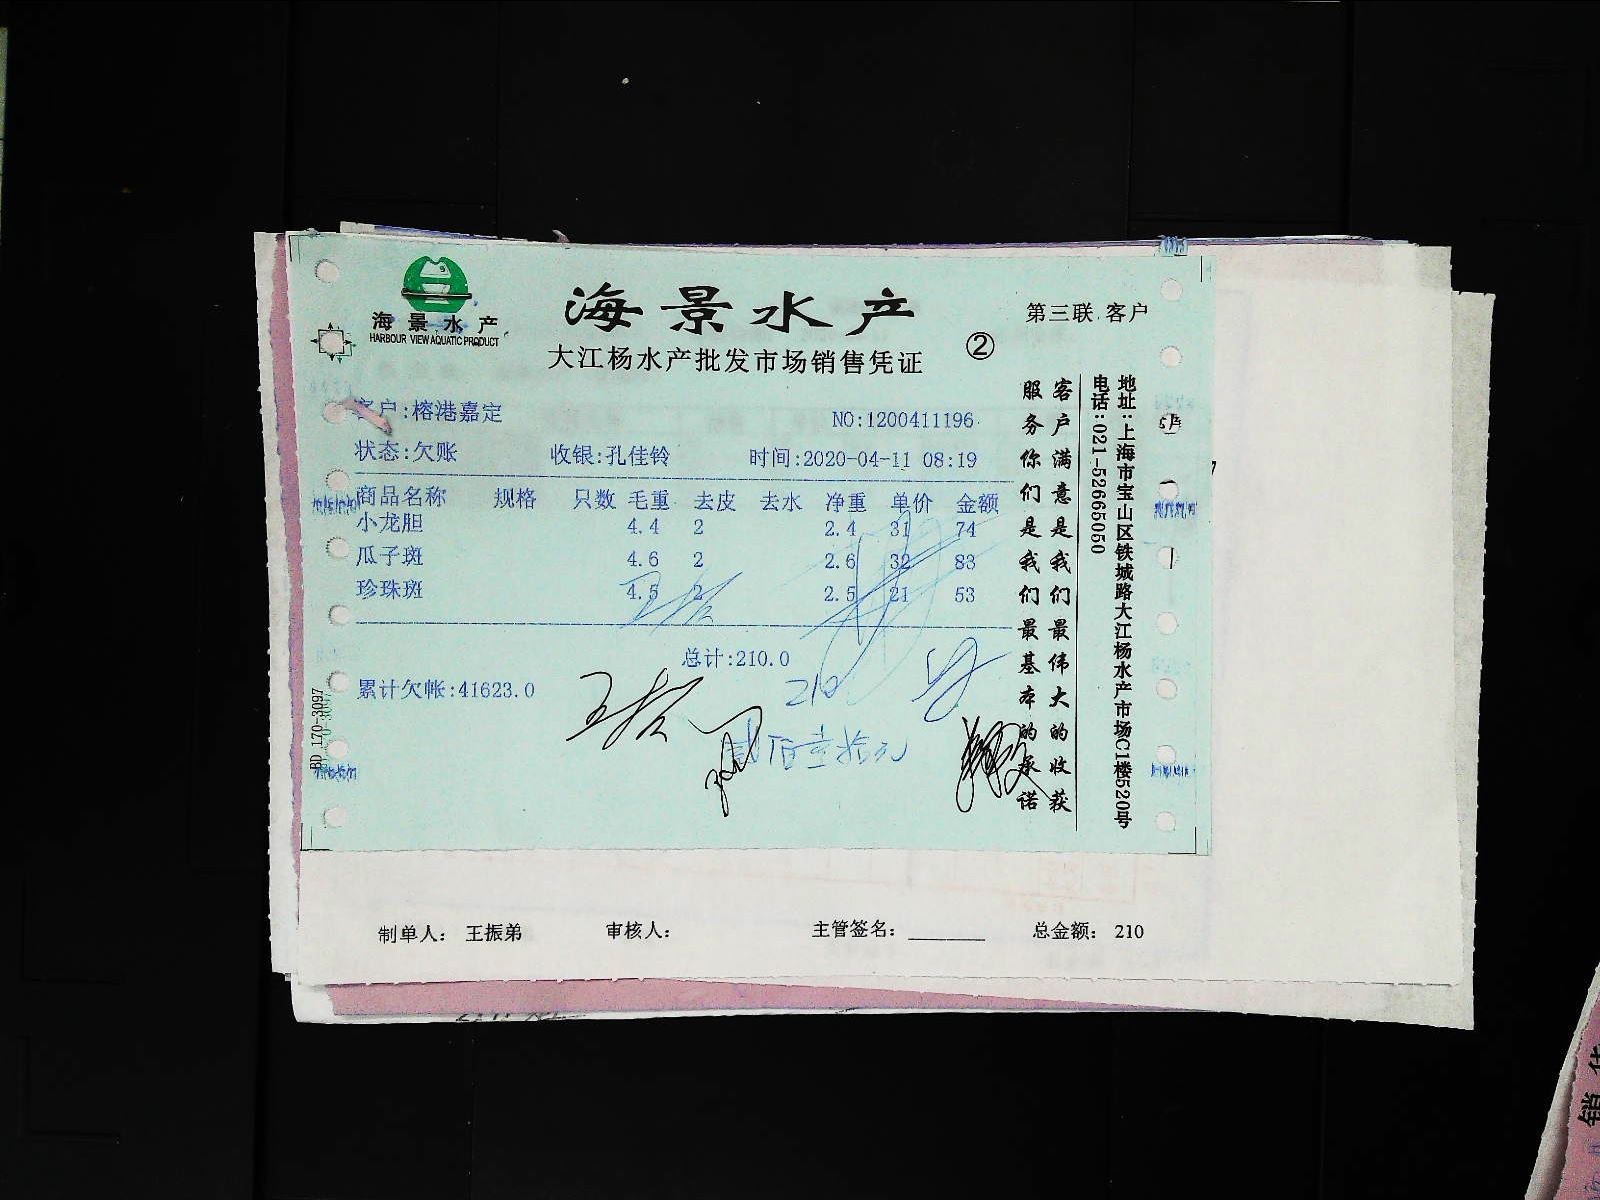 海景水产
HARBOUR VIEW AQUATIC PRODUCT
海景水产
大江杨水产批发市场销售凭证
②
第三联 客户
客户:榕港嘉定 NO:1200411196
状态:欠账 收银:孔佳铃 时间:2020-04-11 08:19
商品名称 规格 只数 毛重 去皮 去水 净重 单价 金额
小龙胆 4.4 2 2.4 31 74
瓜子斑 4.6 2 2.6 32 83
珍珠斑 4.5 2 2.5 21 53
总计:210.0
累计欠帐:41623.0
210
贰佰壹拾元
客户满意是我们最伟大的收获
服务你们是我们最基本的承诺
地址:上海市宝山区铁城路大江杨水产市场C1楼520号
电话:021-52665050
BD 170-3097
制单人: 王振弟 审核人: 主管签名: 总金额: 210